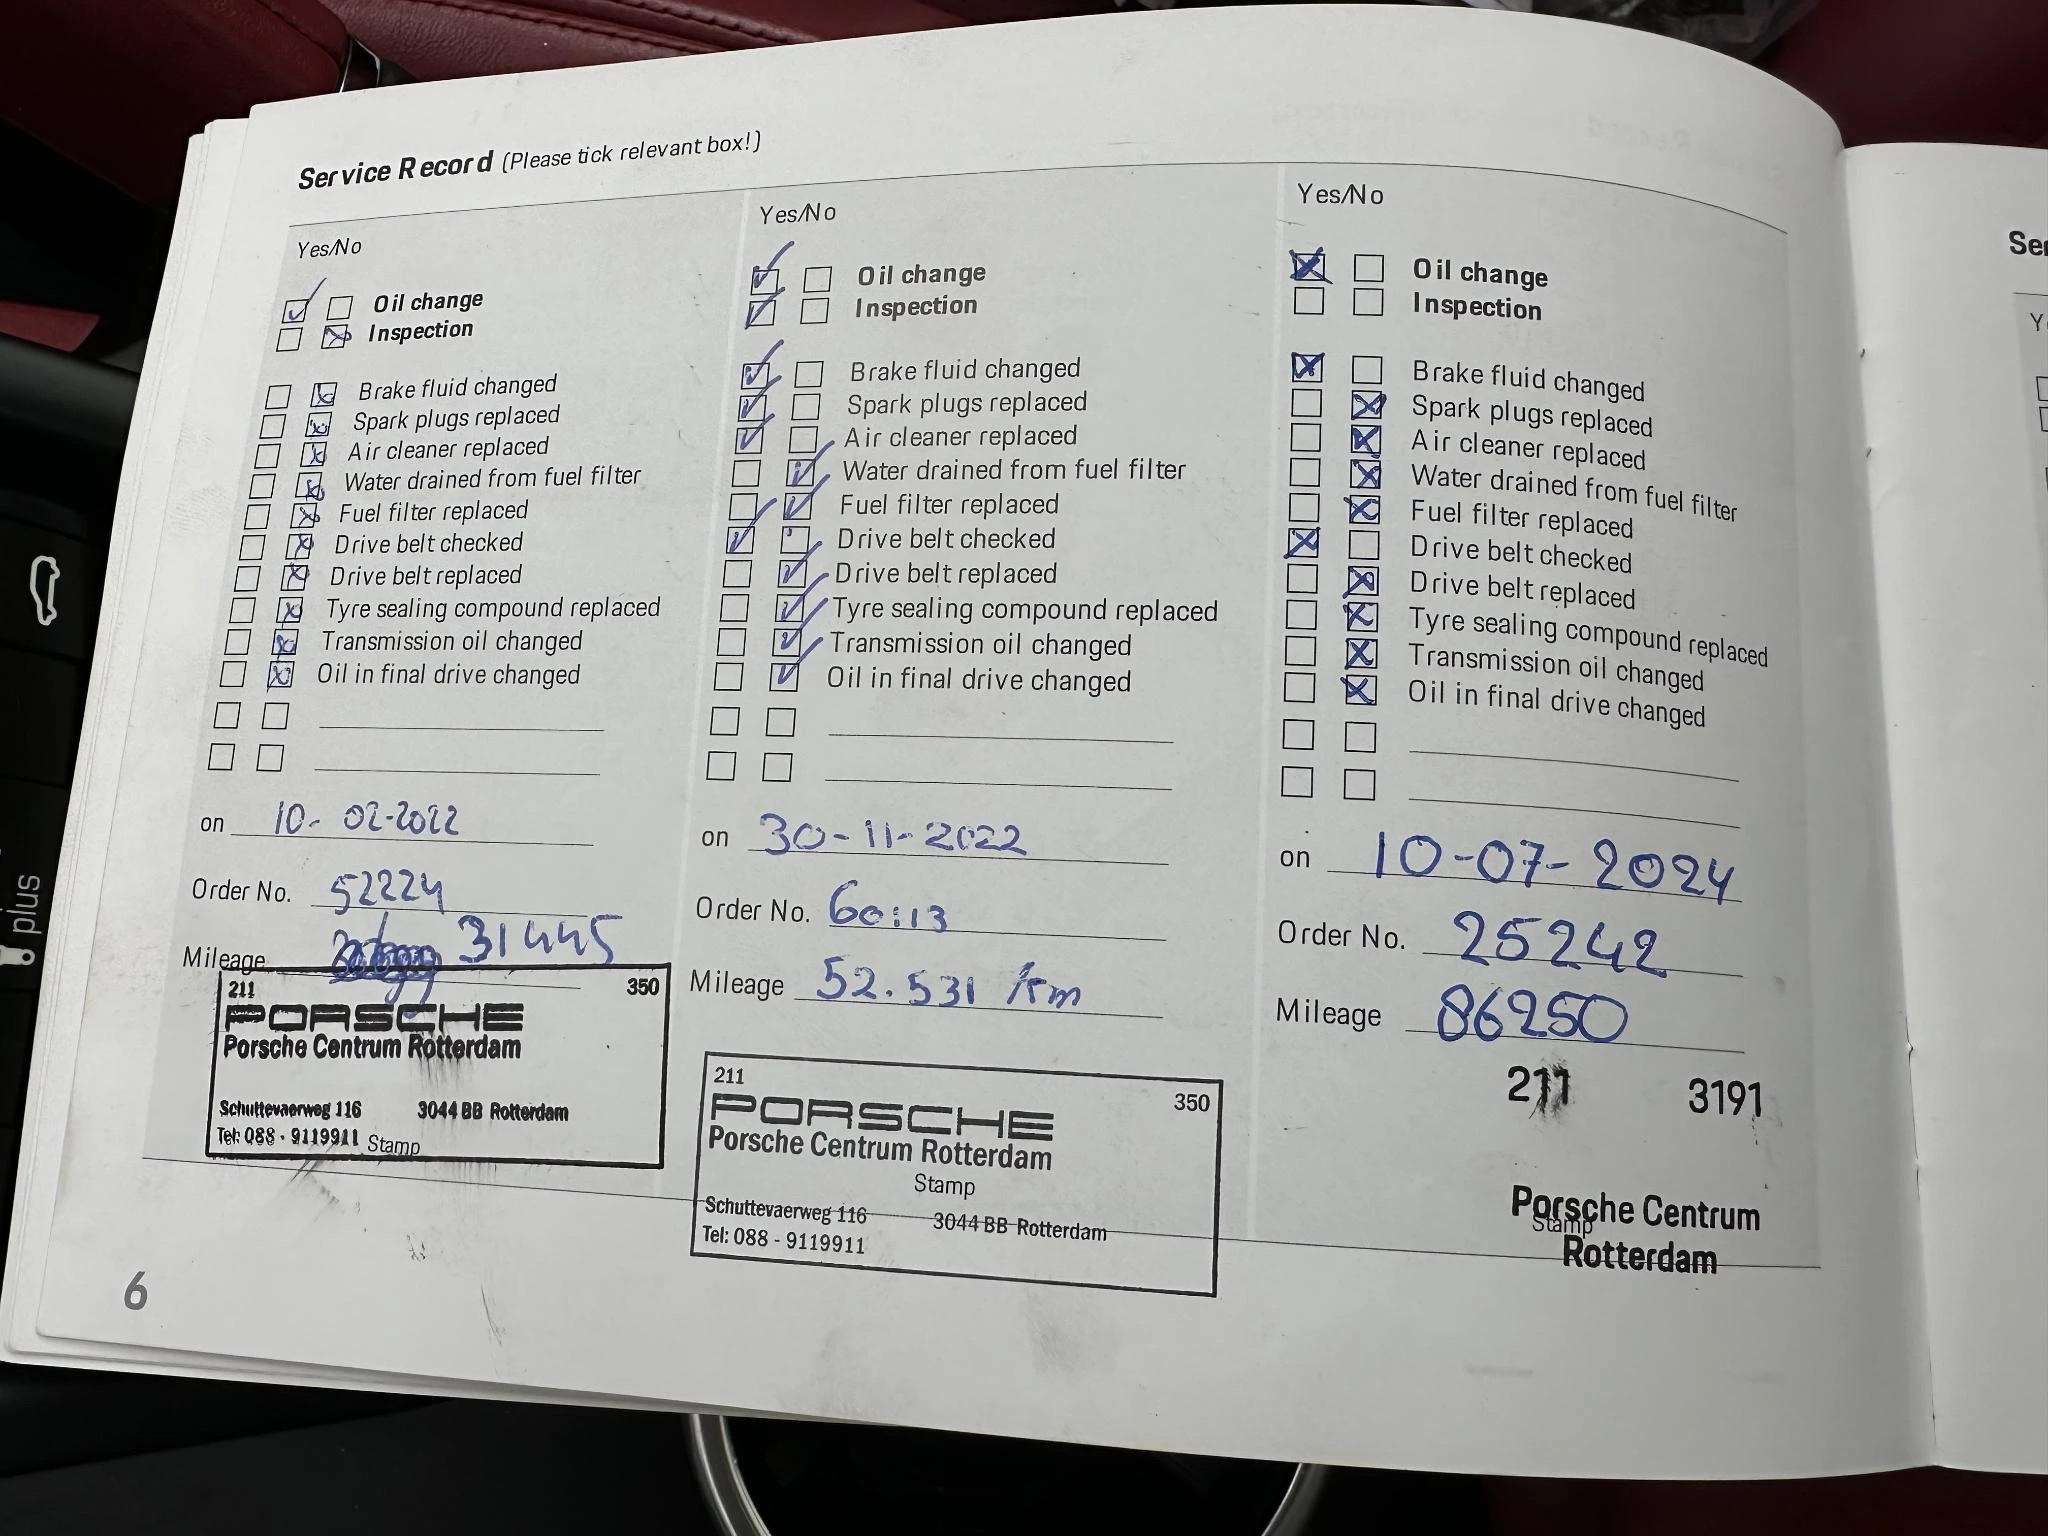 Service Record (Please tick relevant box!)
Yes/No
Oil change
Inspection
Brake fluid changed
Spark plugs replaced
Air cleaner replaced
Water drained from fuel filter
Fuel filter replaced
Drive belt checked
Drive belt replaced
Tyre sealing compound replaced
Transmission oil changed
Oil in final drive changed
on 10-02-2022
Order No. 52224
Mileage 31445
211 350
PORSCHE
Porsche Centrum Rotterdam
Schuttevaerweg 116 3044 BB Rotterdam
Tel: 088 - 9119911 Stamp
Yes/No
Oil change
Inspection
Brake fluid changed
Spark plugs replaced
Air cleaner replaced
Water drained from fuel filter
Fuel filter replaced
Drive belt checked
Drive belt replaced
Tyre sealing compound replaced
Transmission oil changed
Oil in final drive changed
on 30-11-2022
Order No. 60113
Mileage 52.531 km
211 350
PORSCHE
Porsche Centrum Rotterdam
Stamp
Schuttevaerweg 116 3044 BB Rotterdam
Tel: 088 - 9119911
Yes/No
Oil change
Inspection
Brake fluid changed
Spark plugs replaced
Air cleaner replaced
Water drained from fuel filter
Fuel filter replaced
Drive belt checked
Drive belt replaced
Tyre sealing compound replaced
Transmission oil changed
Oil in final drive changed
on 10-07-2024
Order No. 25242
Mileage 86250
211 3191
Porsche Centrum
Stamp
Rotterdam
6
plus
Ser
Y